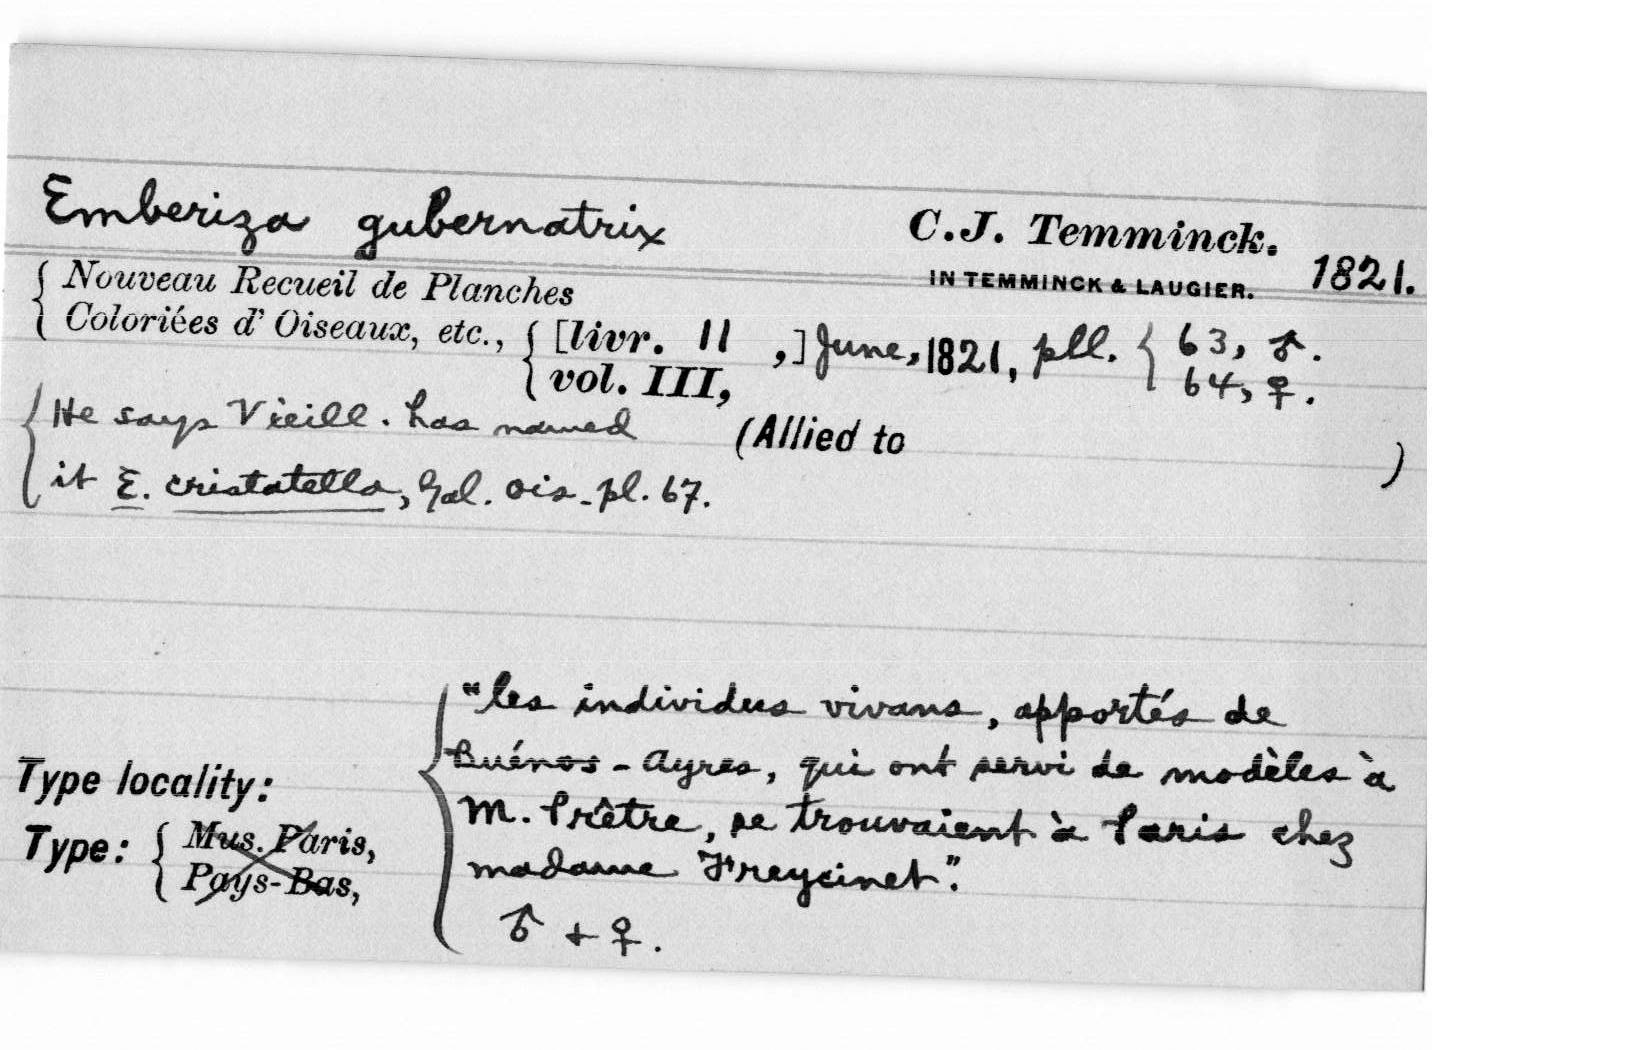 Emberiza gubernatrix C.J. Temminck.
IN TEMMINCK & LAUGIER. 1821.
{ Nouveau Recueil de Planches
Coloriées d' Oiseaux, etc., { [livr. 11 ,] June, 1821, pll. { 63, ♂.
vol. III, 64, ♀.
{ He says Vieill. has named (Allied to )
it E. cristatella, Gal. ois. pl. 67.
{ "les individus vivans, apportés de
Buénos-Ayres, qui ont servi de modèles à
M. Prêtre, se trouvaient à Paris chez
madame Freycinet".
♂ + ♀.
Type locality:
Type: { Mus. Paris,
Pays-Bas,